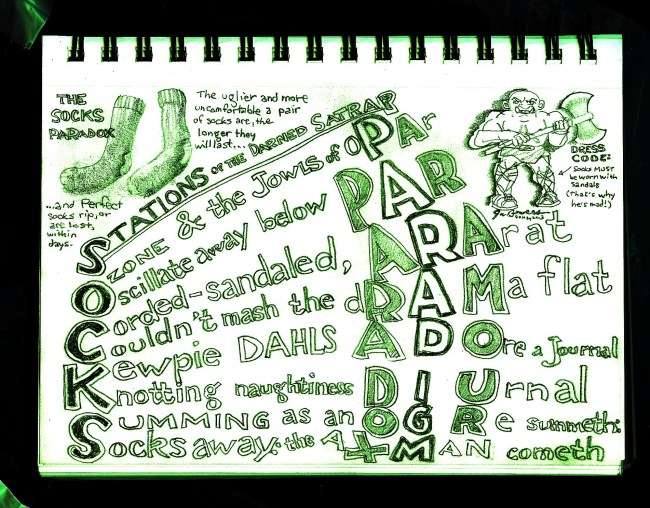 THE
SOCKS
PARADOX
The uglier and more
uncomfortable a pair
of socks are, the
longer they
will last...
...and Perfect
socks rip, or
are lost,
within
days.
DRESS
CODE:
Socks MUST
be worn with
sandals
(that's why
he's mad!)
STATIONS OF THE DARNED SATRAP
OZONE & the Jowls of PAr
Oscillate away below PARArat
Corded-sandaled, ARMa flat
Couldn't mash the dRA
Kewpie DAHLS ADOre a Journal
Knotting naughtiness DIUrnal
SUMMING as an OGRe summeth:
Socks away: the A+MAN cometh